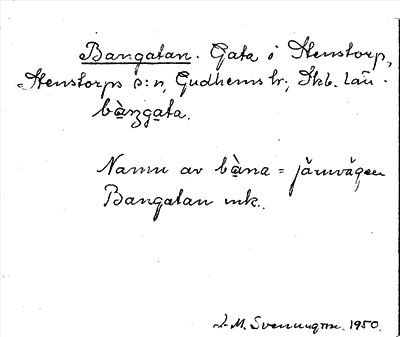 Bangatan. Gata i Stenstorp,
Stenstorps s:n, Gudhems hr; Skb. län.
bàngata.
Namn av bàna = järnvägen
Bangatan mk.
J. M. Svennungsson. 1950.